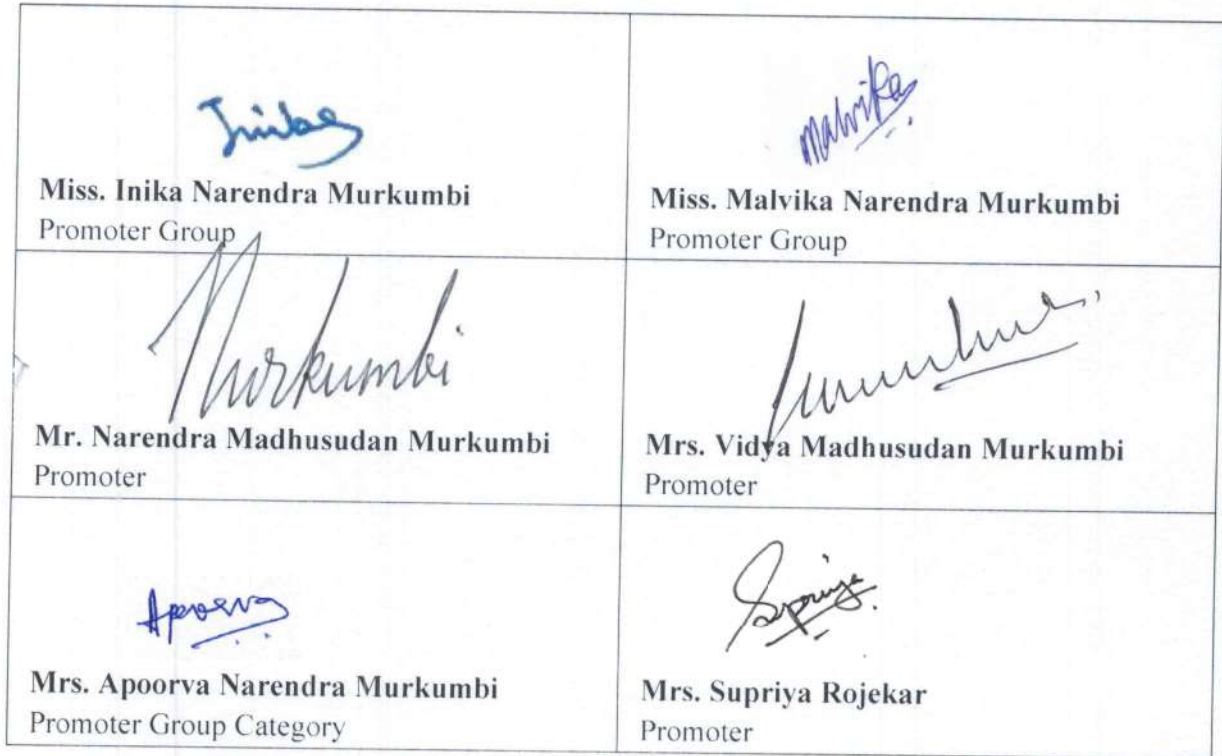 Inika
Malvika
Miss. Inika Narendra Murkumbi
Promoter Group
Miss. Malvika Narendra Murkumbi
Promoter Group
Murkumbi
Mr. Narendra Madhusudan Murkumbi
Promoter
Mrs. Vidya Madhusudan Murkumbi
Promoter
Apoorva
Supriya
Mrs. Apoorva Narendra Murkumbi
Promoter Group Category
Mrs. Supriya Rojekar
Promoter